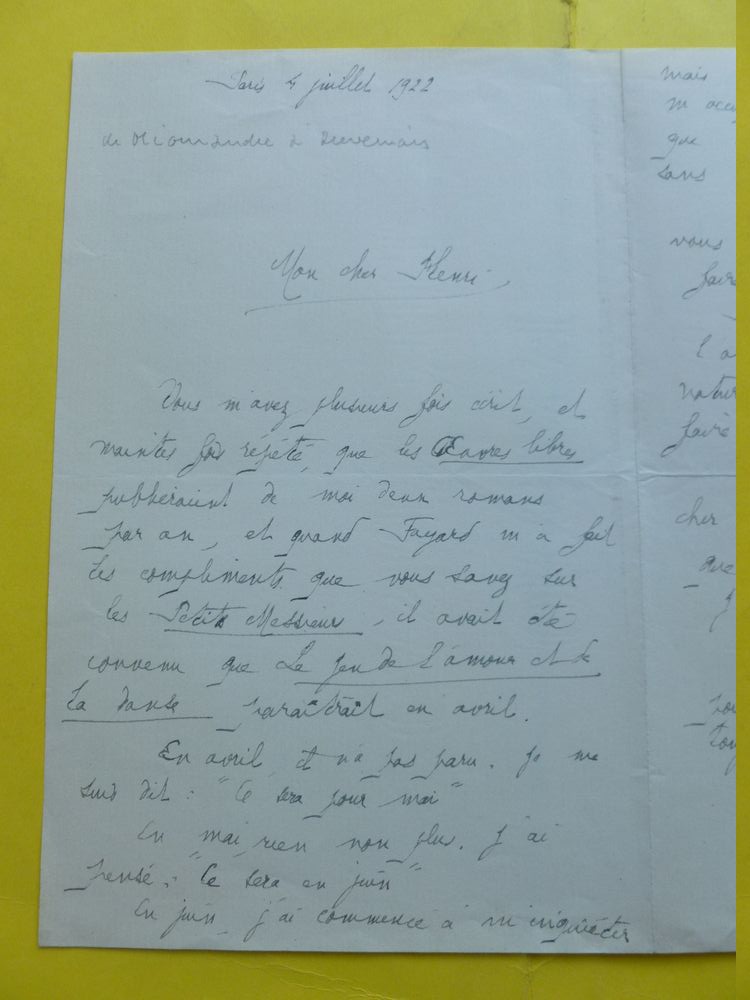 Paris 4 juillet 1922
de Miomandre à Duvernois
Mon cher Henri,
Vous m'avez plusieurs fois écrit, et
maintes fois répété, que les Œuvres libres
publieraient de moi deux romans
par an, et quand Fayard m'a fait
les compliments que vous savez sur
les Petits Messieurs, il avait été
convenu que Le jeu de l'amour et de
la danse paraîtrait en avril.
En avril, il n'a pas paru. Je me
suis dit : "Ce sera pour mai"
En mai, rien non plus. J'ai
pensé : "Ce sera en juin"
En juin, j'ai commencé à m'inquiéter
mais
m'occu
que
sans
vous
faire
l'a
natur
faire
cher
que
j'
pou